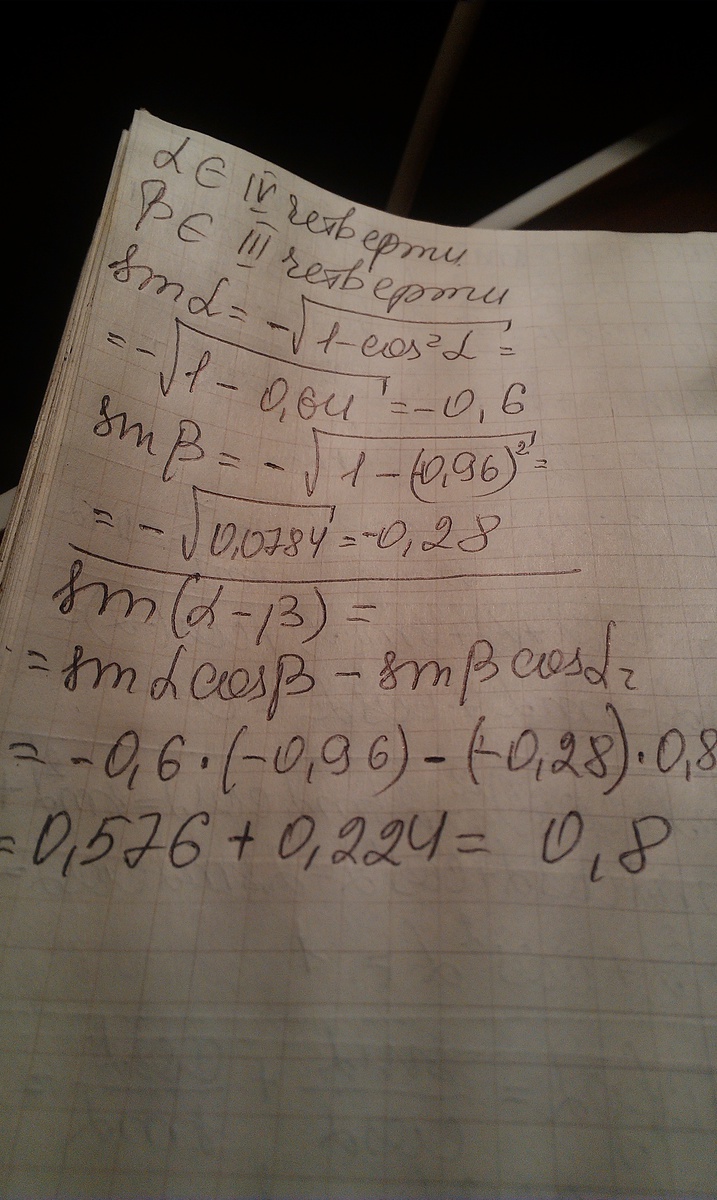 α ∈ IV четверти
β ∈ III четверти
sin α = -√(1-cos²α) =
= -√(1 - 0,64) = -0,6
sin β = -√(1-(-0,96)²) =
= -√(0,0784) = -0,28
sin(α-β) =
= sin α cos β - sin β cos α =
= -0,6·(-0,96) - (-0,28)·0,8
= 0,576 + 0,224 = 0,8